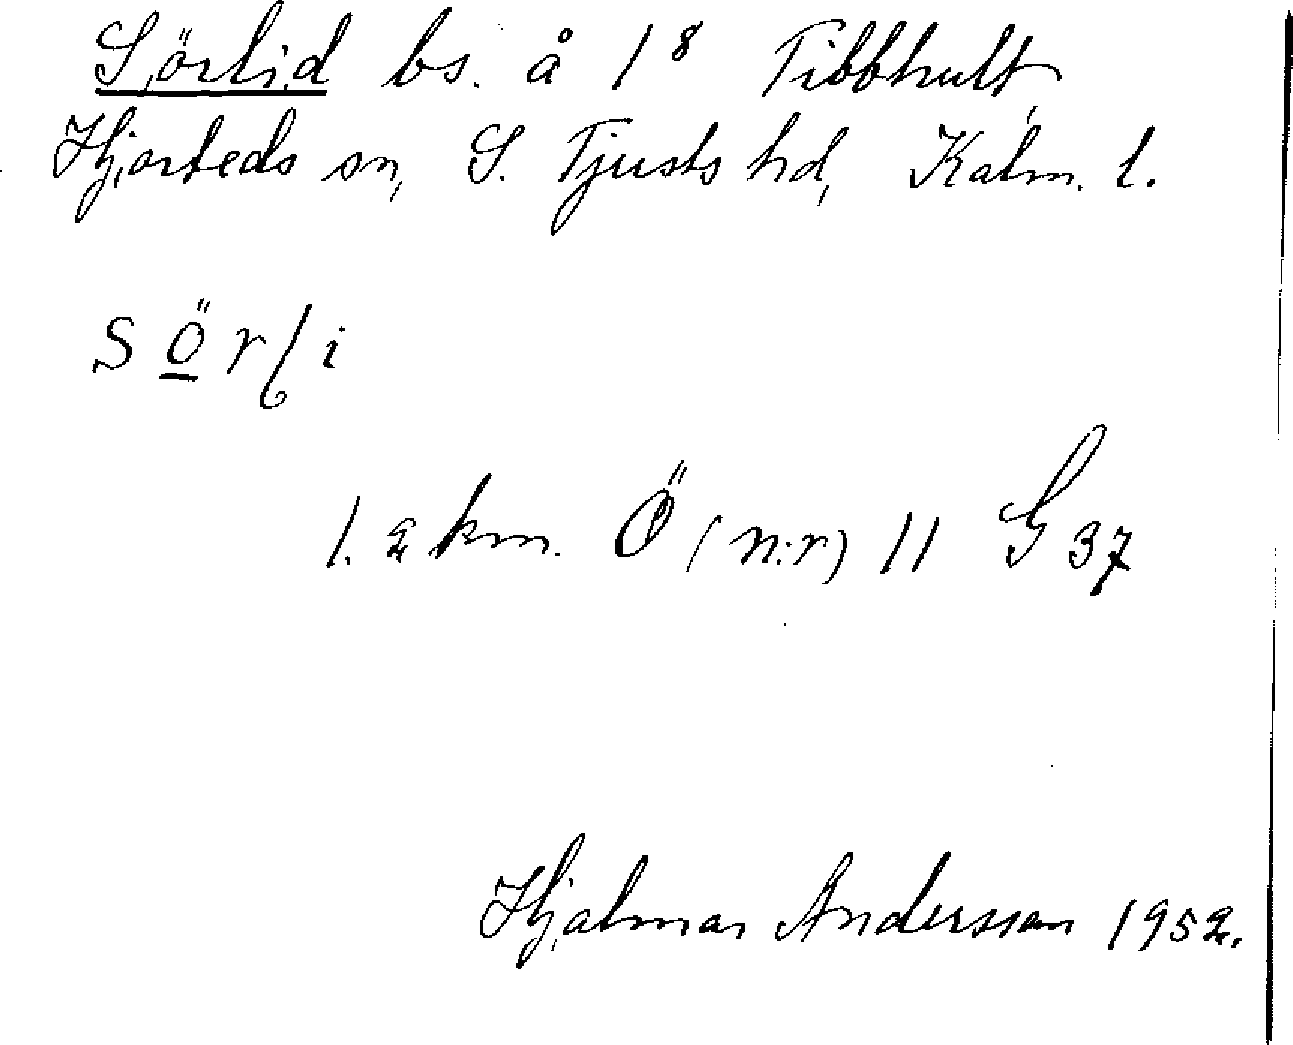 Sörlid bs. å 1⁸ Tibbhult,
Hjorteds sn, S. Tjusts hd, Kalm. l.
sörli
1.2 km. Ö (n:r) 11 G 37
Hjalmar Andersson 1952.